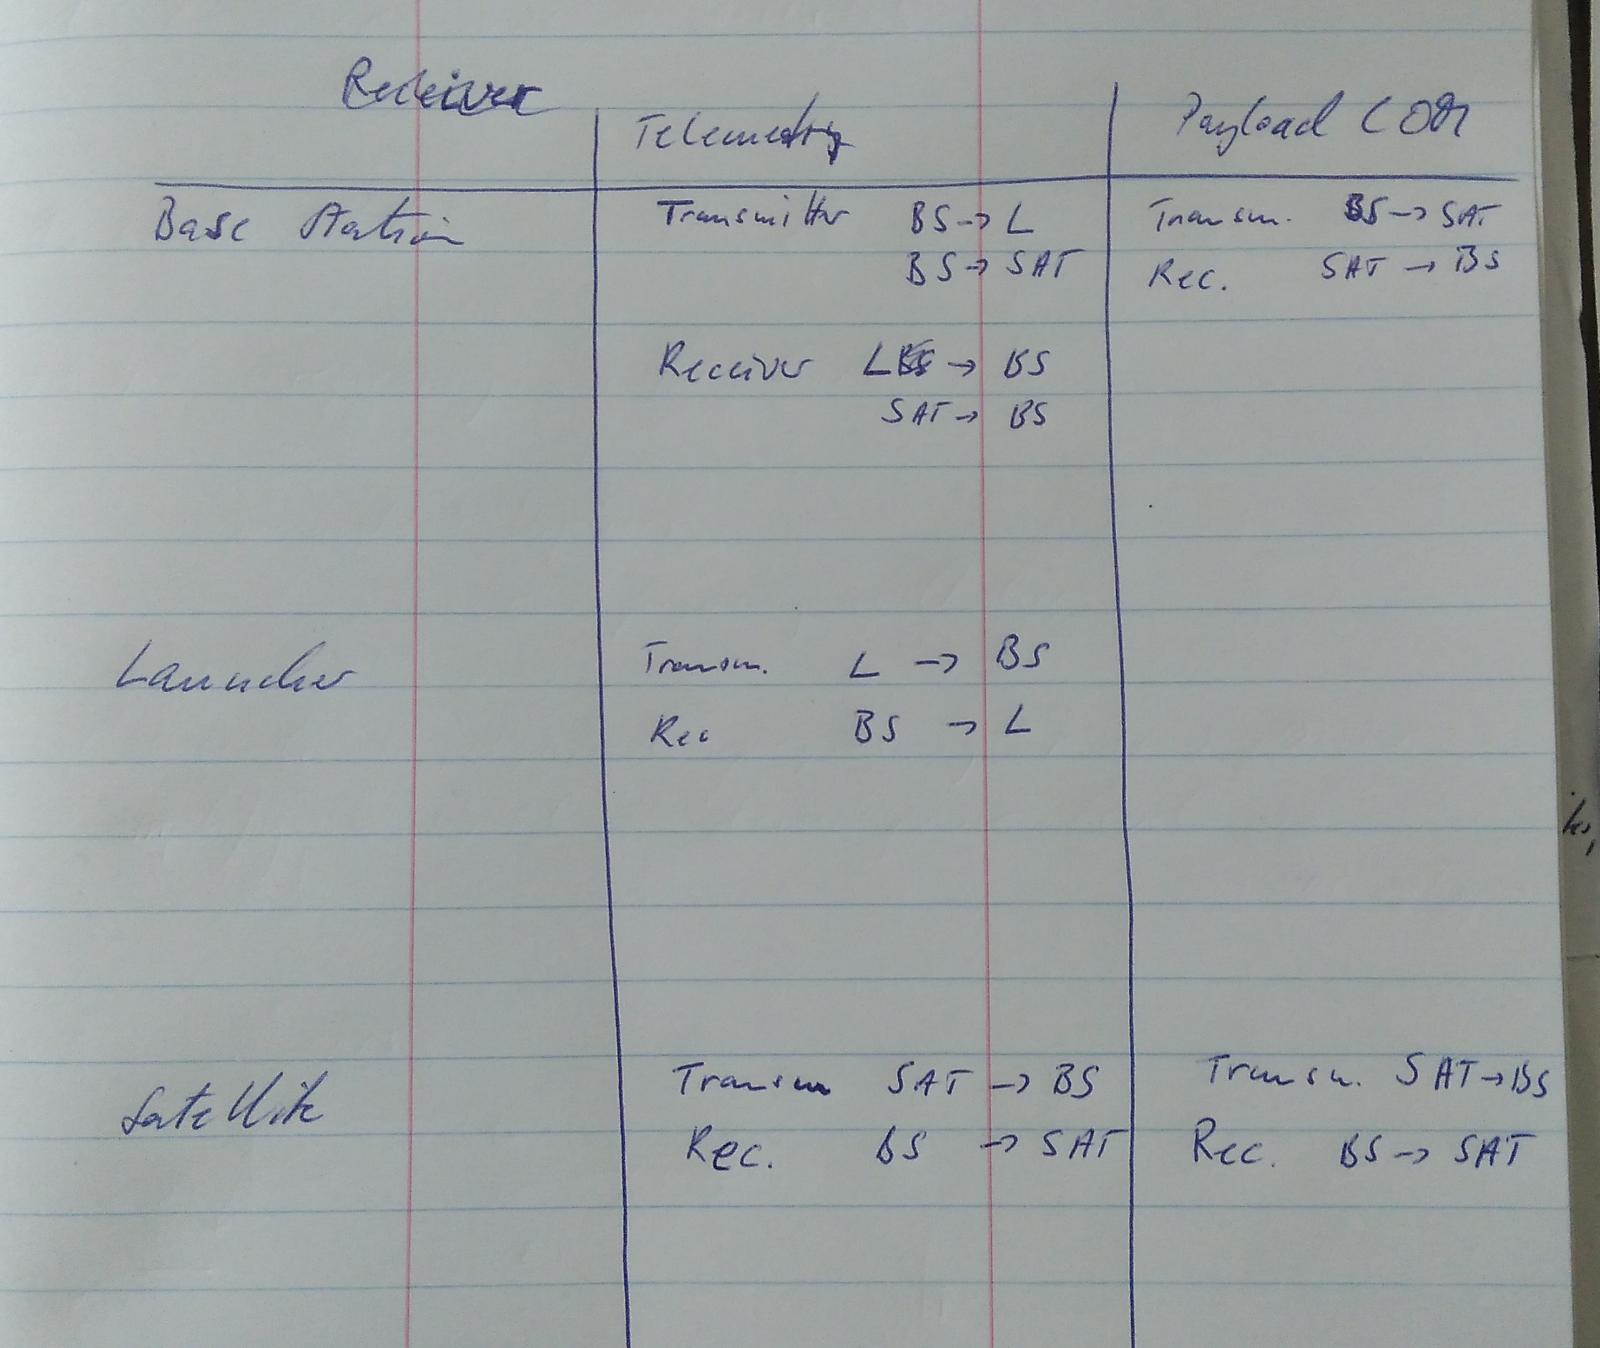 Receiver
Telemetry
Payload COM
Base Station
Transmitter BS → L
Transm. BS → SAT
BS → SAT
Rec. SAT → BS
Receiver L → BS
SAT → BS
Launcher
Transm. L → BS
Rec BS → L
Satellite
Transm SAT → BS
Transm. SAT → BS
Rec. BS → SAT
Rec. BS → SAT